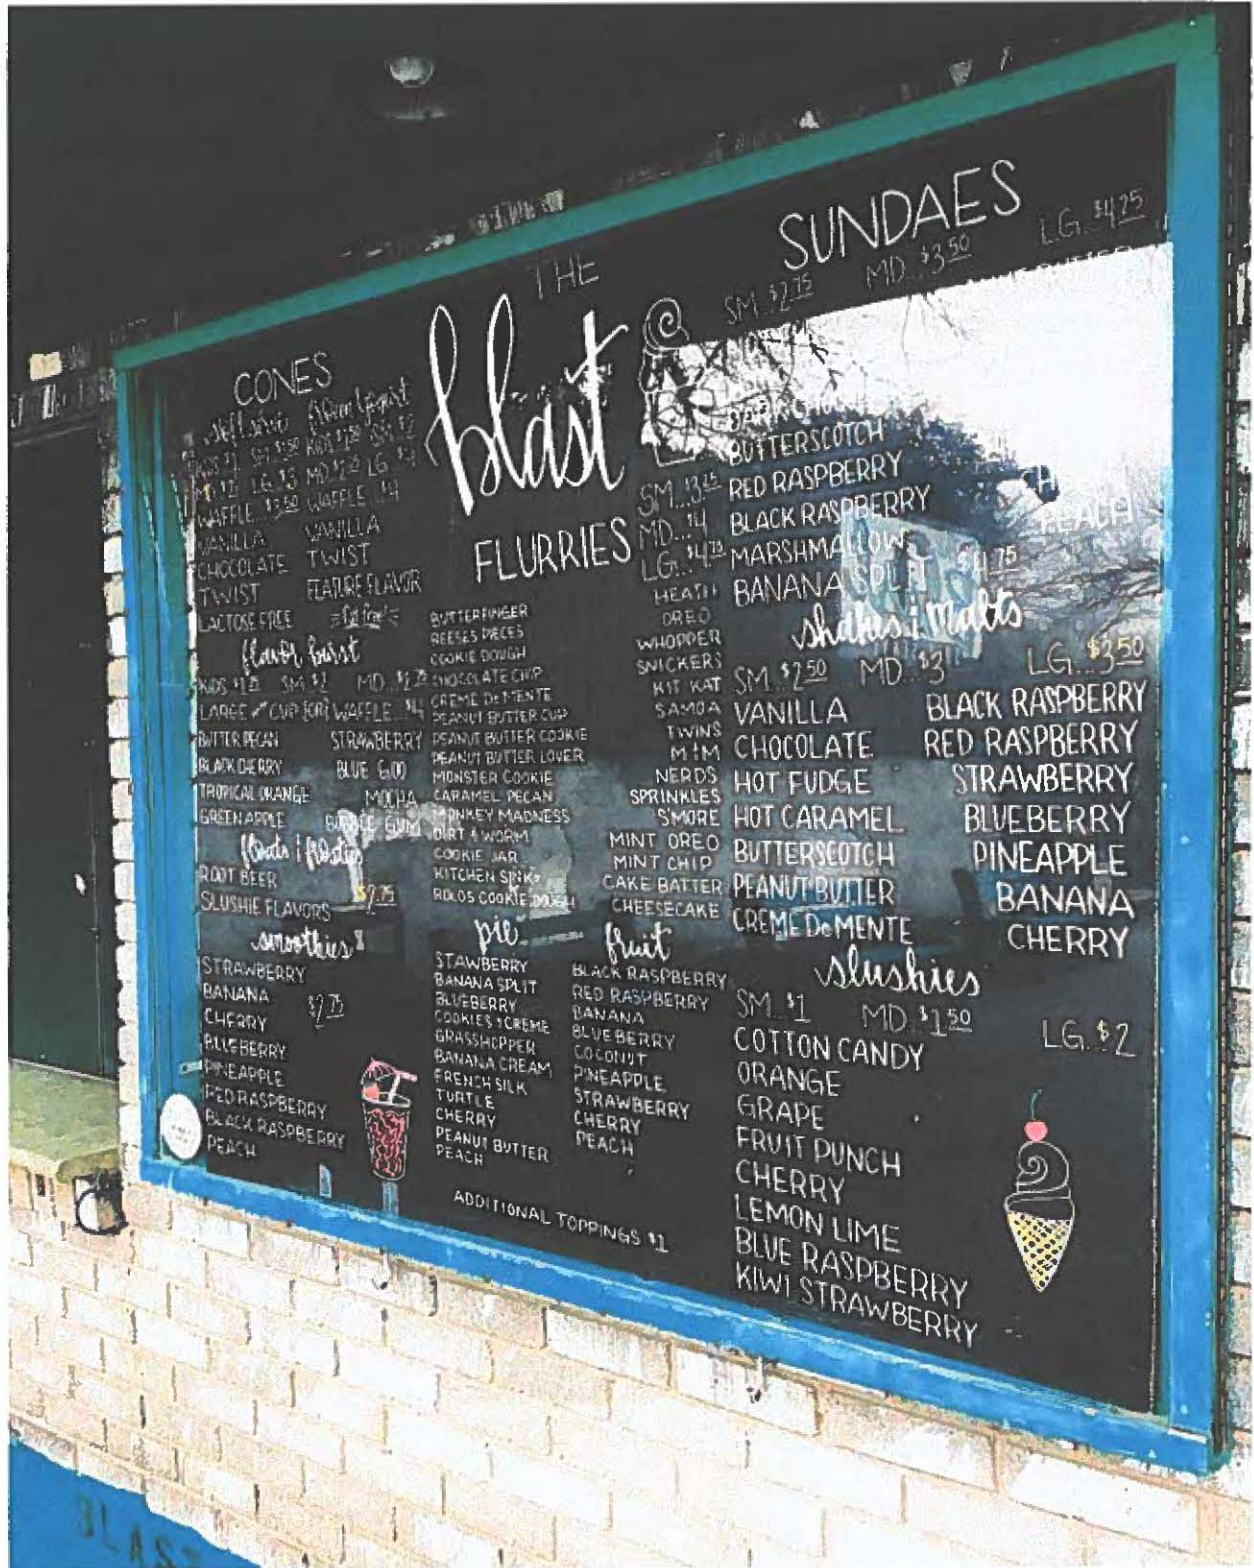 THE
blast
CONES
WAFFLE WAFFLE $4
VANILLA VANILLA
CHOCOLATE TWIST
TWIST FEATURE FLAVOR
LACTOSE FREE
flavor burst
LARGE CUP (OR) WAFFLE $4
BUTTER PECAN STRAWBERRY
BLACK CHERRY BLUE GOO
TROPICAL ORANGE MOCHA
GREEN APPLE
ROOT BEER
SLUSHIE FLAVORS
smoothies
STRAWBERRY
BANANA $2.75
CHERRY
BLUEBERRY
PINEAPPLE
RED RASPBERRY
BLACK RASPBERRY
PEACH
FLURRIES
MD..$4
BUTTERFINGER
REESES PIECES
COOKIE DOUGH
CHOCOLATE CHIP
CREME DE MENTE
PEANUT BUTTER CUP
PEANUT BUTTER COOKIE
PEANUT BUTTER LOVER
MONSTER COOKIE
CARAMEL PECAN
MONKEY MADNESS
DIRT & WORM
COOKIE JAR
KITCHEN SINK
ROLOS COOKIE
HEATH
OREO
WHOPPER
SNICKERS
KIT KAT
SAMOA
TWINS
M&M
NERDS
SPRINKLES
SMORE
MINT OREO
MINT CHIP
CAKE BATTER
CHEESECAKE
pie
STAWBERRY
BANANA SPLIT
BLUEBERRY
COOKIES & CREME
GRASSHOPPER
BANANA CREAM
FRENCH SILK
TURTLE
CHERRY
PEANUT BUTTER
PEACH
fruit
BLACK RASPBERRY
RED RASPBERRY
BANANA
BLUEBERRY
COCONUT
PINEAPPLE
STRAWBERRY
CHERRY
PEACH
ADDITIONAL TOPPINGS $1
SUNDAES
SM..$2.75 MD..$3.50 LG..$4.25
BUTTERSCOTCH
RED RASPBERRY
BLACK RASPBERRY
MARSHMALLOW
BANANA
shakes & malts
SM..$2.50 MD..$3 LG..$3.50
VANILLA BLACK RASPBERRY
CHOCOLATE RED RASPBERRY
HOT FUDGE STRAWBERRY
HOT CARAMEL BLUEBERRY
BUTTERSCOTCH PINEAPPLE
PEANUT BUTTER BANANA
CREME De MENTE CHERRY
slushies
SM..$1 MD..$1.50 LG..$2
COTTON CANDY
ORANGE
GRAPE
FRUIT PUNCH
CHERRY
LEMON LIME
BLUE RASPBERRY
KIWI STRAWBERRY
BLAST